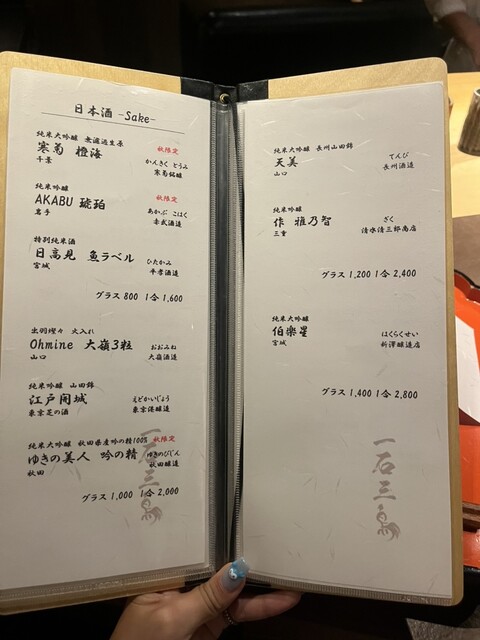 日本酒 -Sake-
純米大吟醸 無濾過生原
秋限定
寒菊 橙海
かんきく とうみ
千葉
寒菊銘醸
純米吟醸
秋限定
AKABU 琥珀
あかぶ こはく
岩手
赤武酒造
特別純米酒
日高見 魚ラベル
ひたかみ
宮城
平孝酒造
グラス 800 1合 1,600
出羽燦々 火入れ
Ohmine 大嶺3粒
おおみね
山口
大嶺酒造
純米吟醸 山田錦
江戸開城
えどかいじょう
東京芝の酒
東京港醸造
純米大吟醸 秋田県産吟の精100%
秋限定
ゆきの美人 吟の精
ゆきのびじん
秋田
秋田醸造
グラス 1,000 1合 2,000
一石三鳥
純米大吟醸 長州山田錦
天美
てんび
山口
長州酒造
純米吟醸
作 雅乃智
ざく
三重
清水清三郎商店
グラス 1,200 1合 2,400
純米大吟醸
伯楽星
はくらくせい
宮城
新澤醸造店
グラス 1,400 1合 2,800
一石三鳥